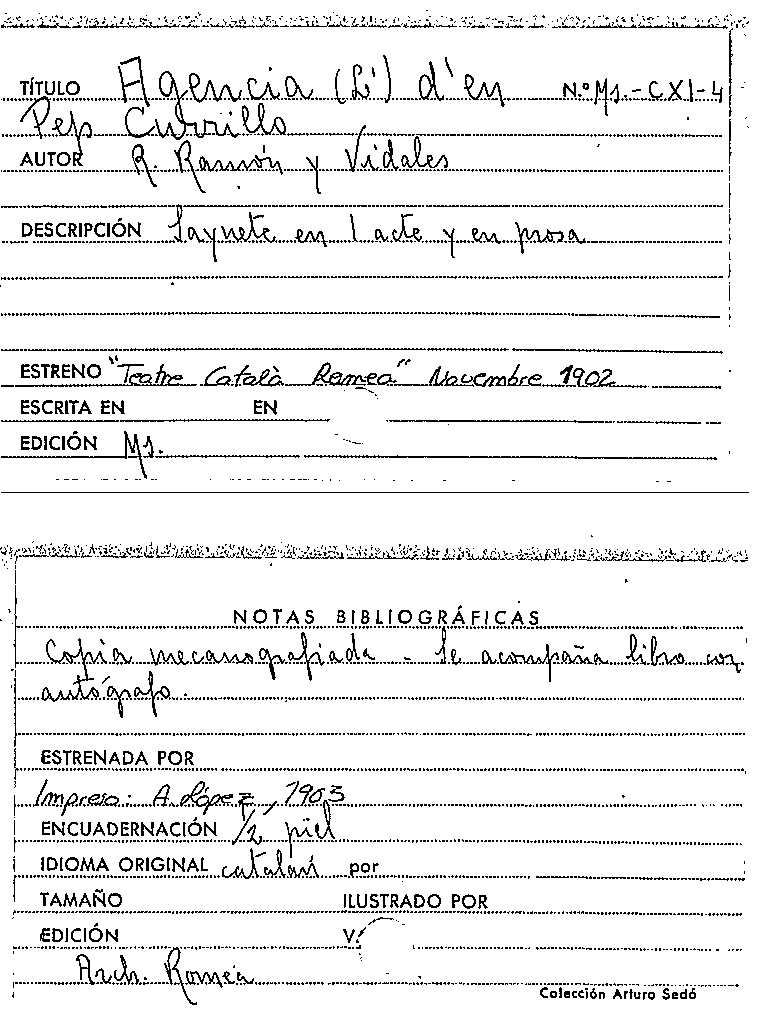 TÍTULO Agencia (L') d'en N.º Ms.-CXI-4
Pep Currillo
AUTOR R. Ramón y Vidales
DESCRIPCIÓN Saynete en 1 acte y en prosa
ESTRENO "Teatre Català Romea" Novembre 1902
ESCRITA EN EN
EDICIÓN Ms.
NOTAS BIBLIOGRÁFICAS
Copia mecanografiada - Se acompaña libro con
autógrafo.
ESTRENADA POR
Impreso: A. López, 1903
ENCUADERNACIÓN 1/2 piel
IDIOMA ORIGINAL catalán por
TAMAÑO ILUSTRADO POR
EDICIÓN V.
Arch. Romea
Colección Arturo Sedó